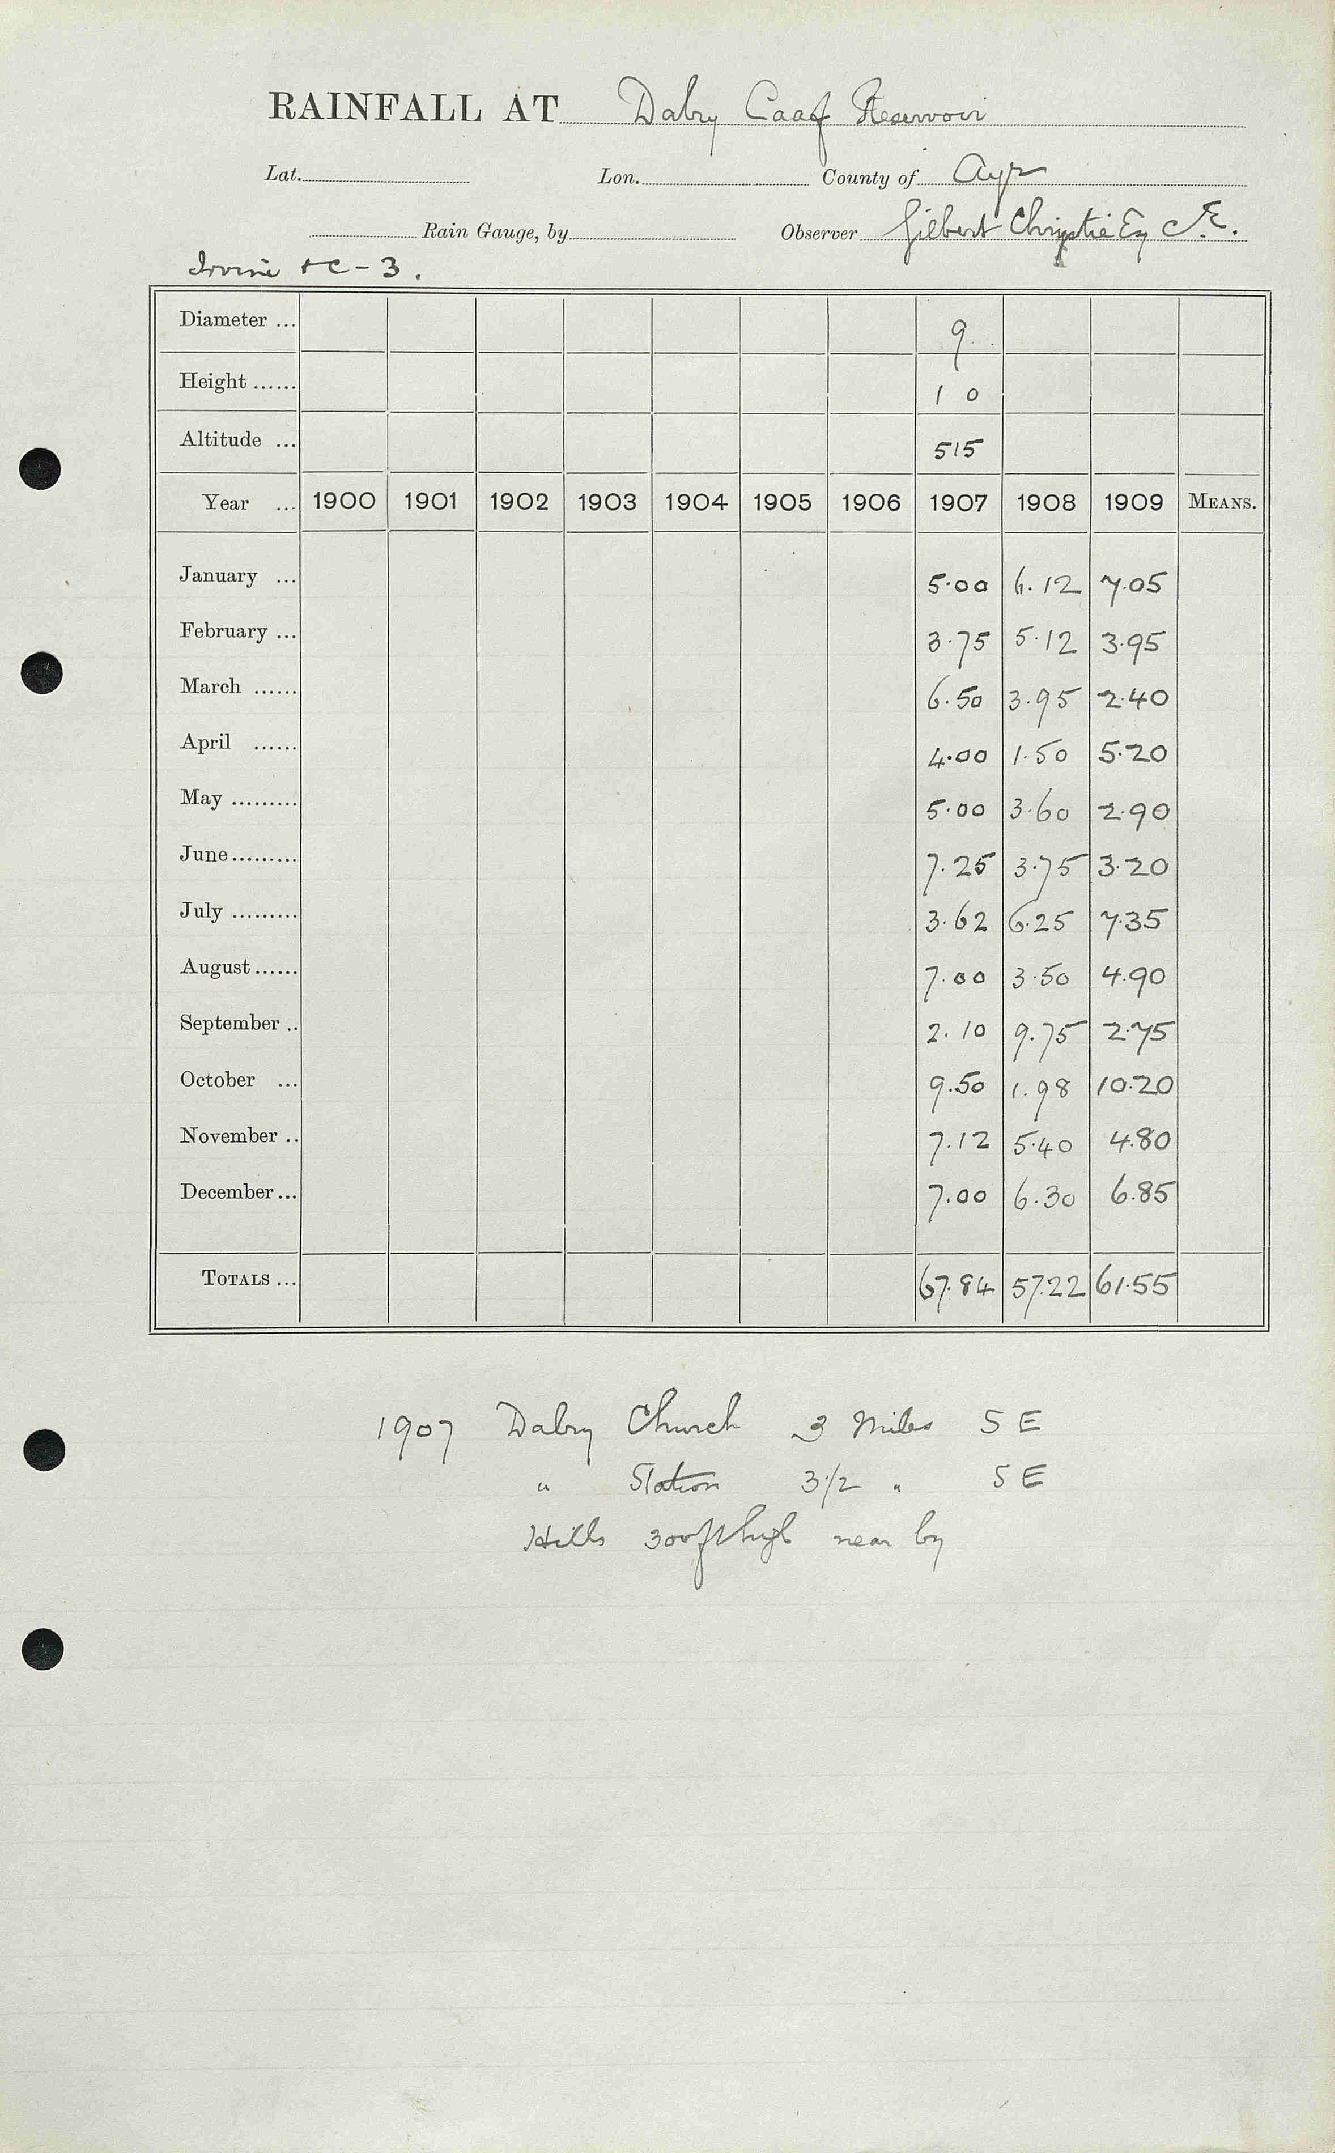 RAINFALL AT Dalry Caaf Reservoir
Lat. Lon. County of Ayr
Rain Gauge, by Observer Gilbert Christie Esq C.E.
Irvine &c - 3.
Diameter ... 9
Height ...... 1 0
Altitude ... 515
Year ... 1900 1901 1902 1903 1904 1905 1906 1907 1908 1909 MEANS.
January ... 5.00 6.12 7.05
February ... 3.75 5.12 3.95
March ...... 6.50 3.95 2.40
April ...... 4.00 1.50 5.20
May ......... 5.00 3.60 2.90
June ......... 7.25 3.75 3.20
July ......... 3.62 6.25 7.35
August ...... 7.00 3.50 4.90
September .. 2.10 9.75 2.75
October ... 9.50 1.98 10.20
November .. 7.12 5.40 4.80
December ... 7.00 6.30 6.85
TOTALS ... 67.84 57.22 61.55
1907 Dalry Church 3 Miles S E
" Station 3 1/2 " S E
Hills 300 ft high near by